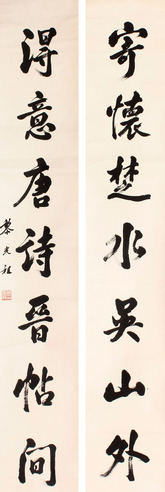 寄懷楚水吳山外
得意唐詩晉帖間